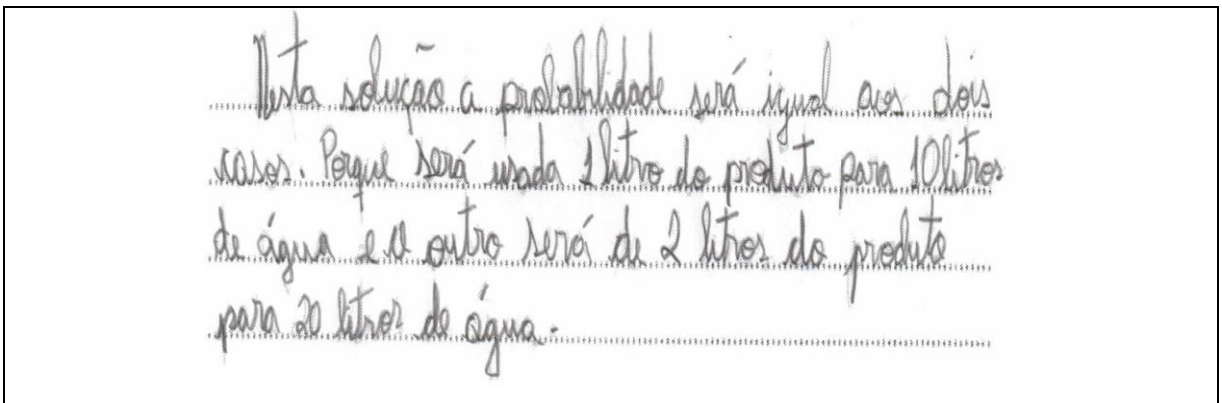 Nesta solução a probabilidade será igual aos dois
casos. Porque será usada 1 litro do produto para 10 litros
de água e o outro será de 2 litros do produto
para 20 litros de água.